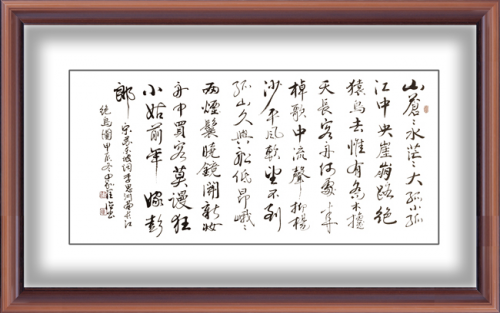 山蒼〻水茫〻大孤小孤
江中央崖崩路絕
猿鳥去惟有喬木攙
天長客舟何處來
棹歌中流聲抑揚
沙平風軟望不到
孤山久與船低昂峨〻
兩煙鬟曉鏡開新妝
舟中賈客莫謾狂
小姑前年嫁彭
郎
宋蘇東坡詞李思訓畫長江
絕島圖甲冬